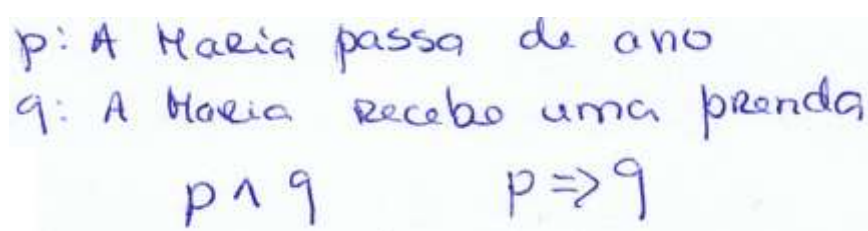 p: A Maria passa de ano
q: A Maria recebe uma prenda
p ∧ q p => q